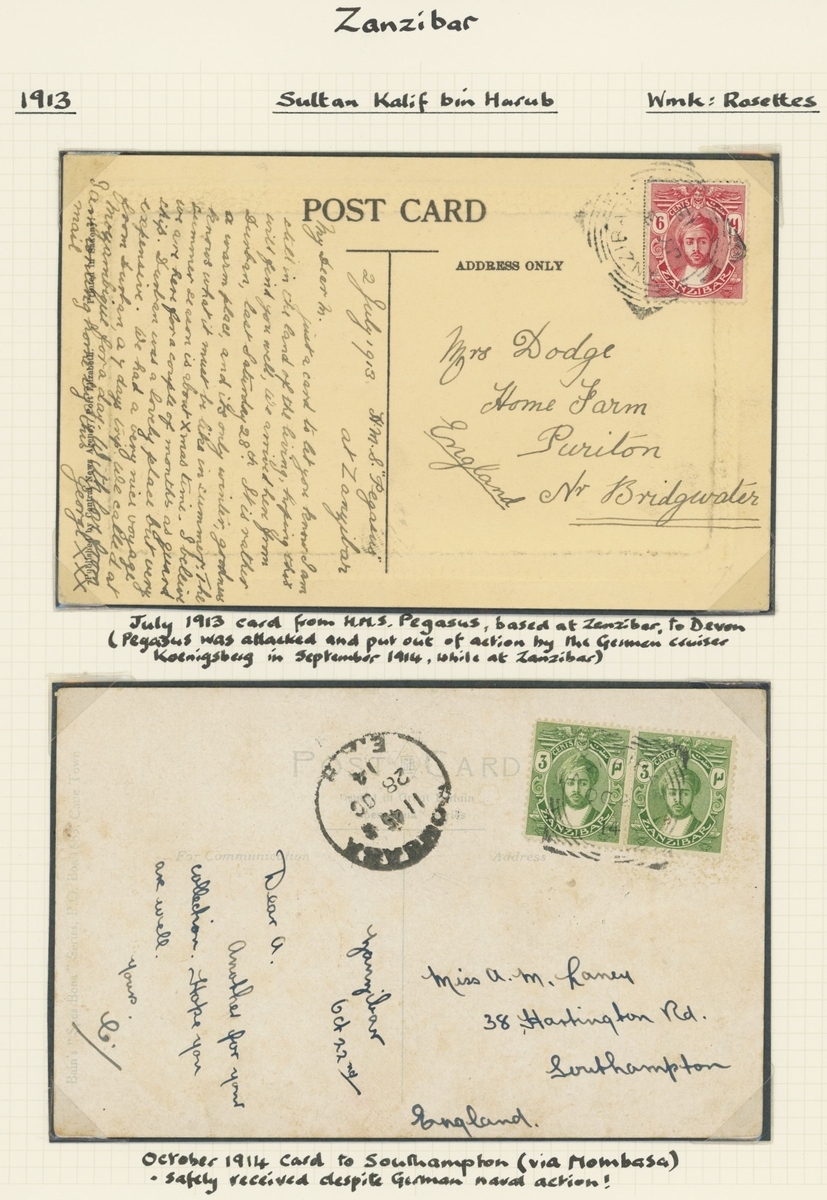 Zanzibar
1913
Sultan Kalif bin Harub
Wmk: Rosettes
POST CARD
ADDRESS ONLY
6 CENTS ٦
ZANZIBAR
2 July 1913. H.M.S. "Pegasus"
at Zanzibar
My Dear M.
Just a card to let you know I am
still in the land of the living, hoping this
will find you well, we arrived here from
Durban, last Saturday 28th. It is rather
a warm place, and its only winter, goodness
knows what it must be like in summer. The
summer season is about Xmas time. I believe
we are here for a couple of months as guard
ship. Durban was a lovely place but very
expensive. We had a very nice voyage
from Durban, a 7 days trip we called at
Mozambique for a day.
mail
George XXX
Mrs Dodge
Home Farm
Puriton
Nr Bridgwater
England
July 1913 card from H.M.S. Pegasus, based at Zanzibar, to Devon
(Pegasus was attacked and put out of action by the German cruiser
Koenigsberg in September 1914, while at Zanzibar)
POST CARD
For Communication
Address
3 CENTS ٣
ZANZIBAR
3 CENTS ٣
ZANZIBAR
MOMBASA
11 45
28 OC
14
Zanzibar
Oct 22nd
Dear A.
Another for your
collection. Hope you
are well.
yours.
Miss A. M. Laney
38 Hartington Rd.
Southampton
England.
October 1914 card to Southampton (via Mombasa)
- safely received despite German naval action!